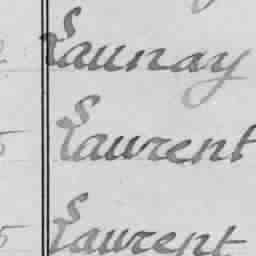 Launay
Laurent
Laurent